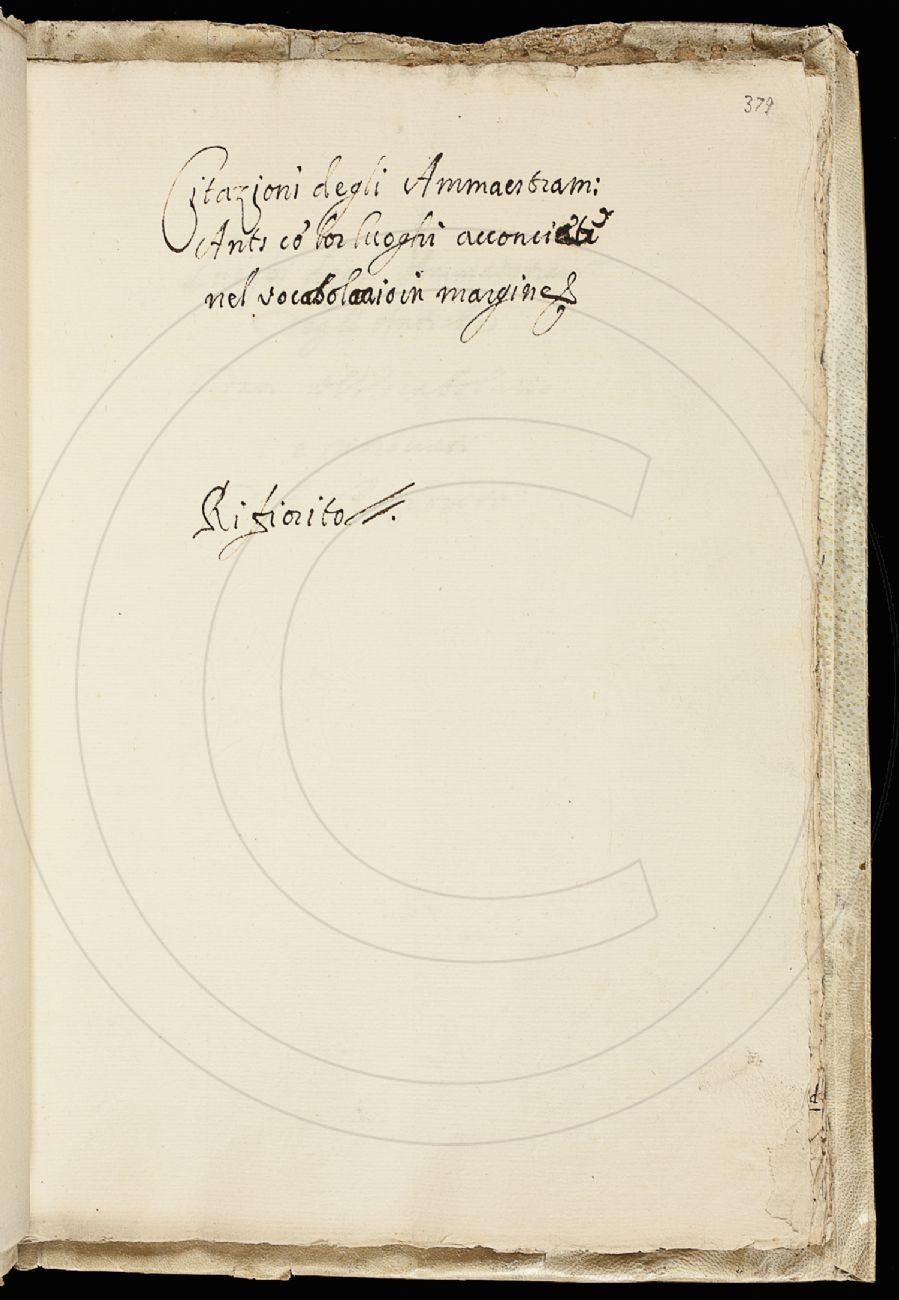 379
Citazioni degli Ammaestram:
Ants cõ lor luoghi acconci
nel vocabolario in margine
Rifiorito